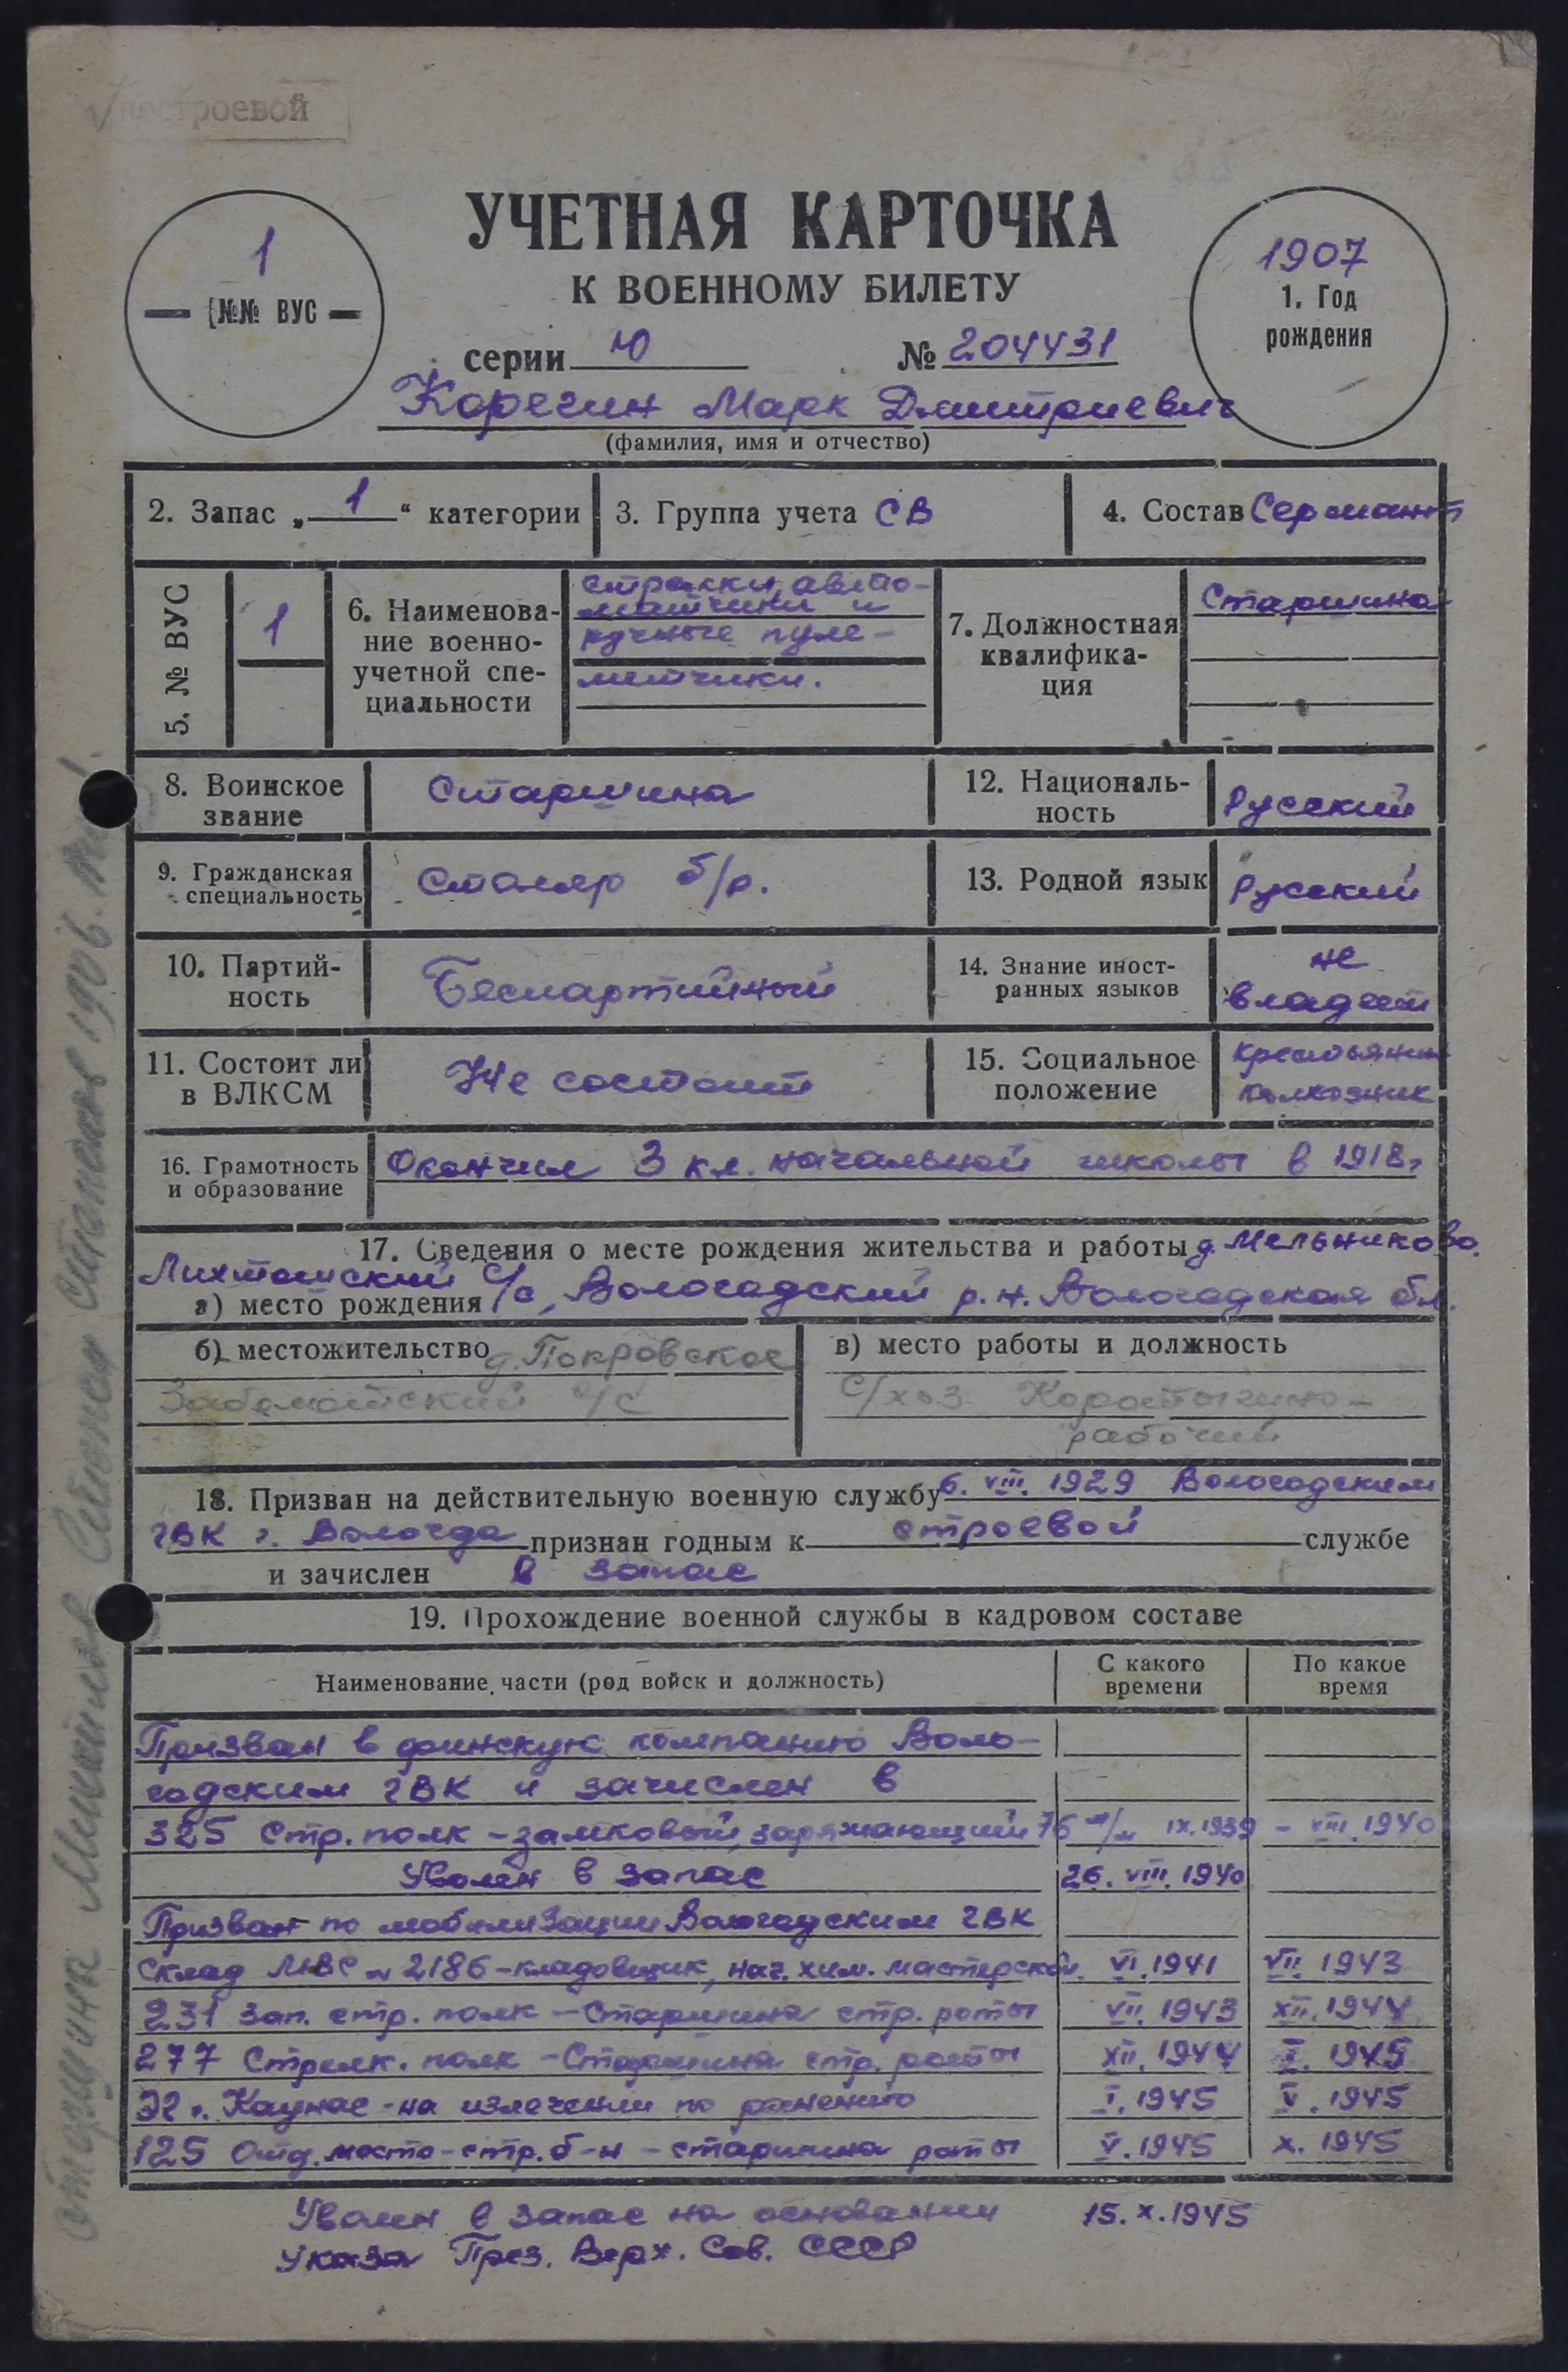 нестроевой
УЧЕТНАЯ КАРТОЧКА
К ВОЕННОМУ БИЛЕТУ
1
№№ ВУС
1907
1. Год
рождения
серии Ю № 204431
Корегин Марк Дмитриевич
(фамилия, имя и отчество)
2. Запас „1“ категории
3. Группа учета СВ
4. Состав Сержант
5. № ВУС
1
6. Наименова-
ние военно-
учетной спе-
циальности
стрелки, авто-
матчики и
ручные пуле-
метчики.
7. Должностная
квалифика-
ция
Старшина
8. Воинское
звание
Старшина
12. Националь-
ность
Русский
9. Гражданская
специальность
Столяр 5/р.
13. Родной язык
Русский
10. Партий-
ность
Беспартийный
14. Знание иност-
ранных языков
не
владеет
11. Состоит ли
в ВЛКСМ
Не состоит
15. Социальное
положение
Крестьянин
колхозник
16. Грамотность
и образование
Окончил 3 кл. начальной школы в 1918г
17. Сведения о месте рождения жительства и работы д. Мельниково.
Лихтошский с/с, Вологодский р.н. Вологодская обл.
а) место рождения
б) местожительство д. Покровское
Заболотский с/с
в) место работы и должность
С/хоз Коротыгино-
рабочий
18. Призван на действительную военную службу 6. VIII. 1929 Вологодским
ГВК г. Вологда признан годным к строевой службе
и зачислен в запас
19. Прохождение военной службы в кадровом составе
Наименование части (род войск и должность)
С какого
времени
По какое
время
Призван в финскую компанию Воло-
годским ГВК и зачислен в
325 Стр. полк - замковый, заряжающий 76 м/м IX.1939 - VIII.1940
Уволен в запас 26. VIII. 1940
Призван по мобилизации Вологодским ГВК
Склад МВС № 2186 - кладовщик, нач. хим. мастерской VI.1941 VII.1943
231 зап. стр. полк - Старшина стр. роты VII.1943 XII.1944
277 Стрелк. полк - Старшина стр. роты XII.1944 I.1945
ЭГ г. Каунас - на излечении по ранению I.1945 V.1945
125 Отд. место-стр. б-н - старшина роты V.1945 X.1945
Уволен в запас на основании 15.X.1945
Указа През. Верх. Сов. СССР
старшина Степан